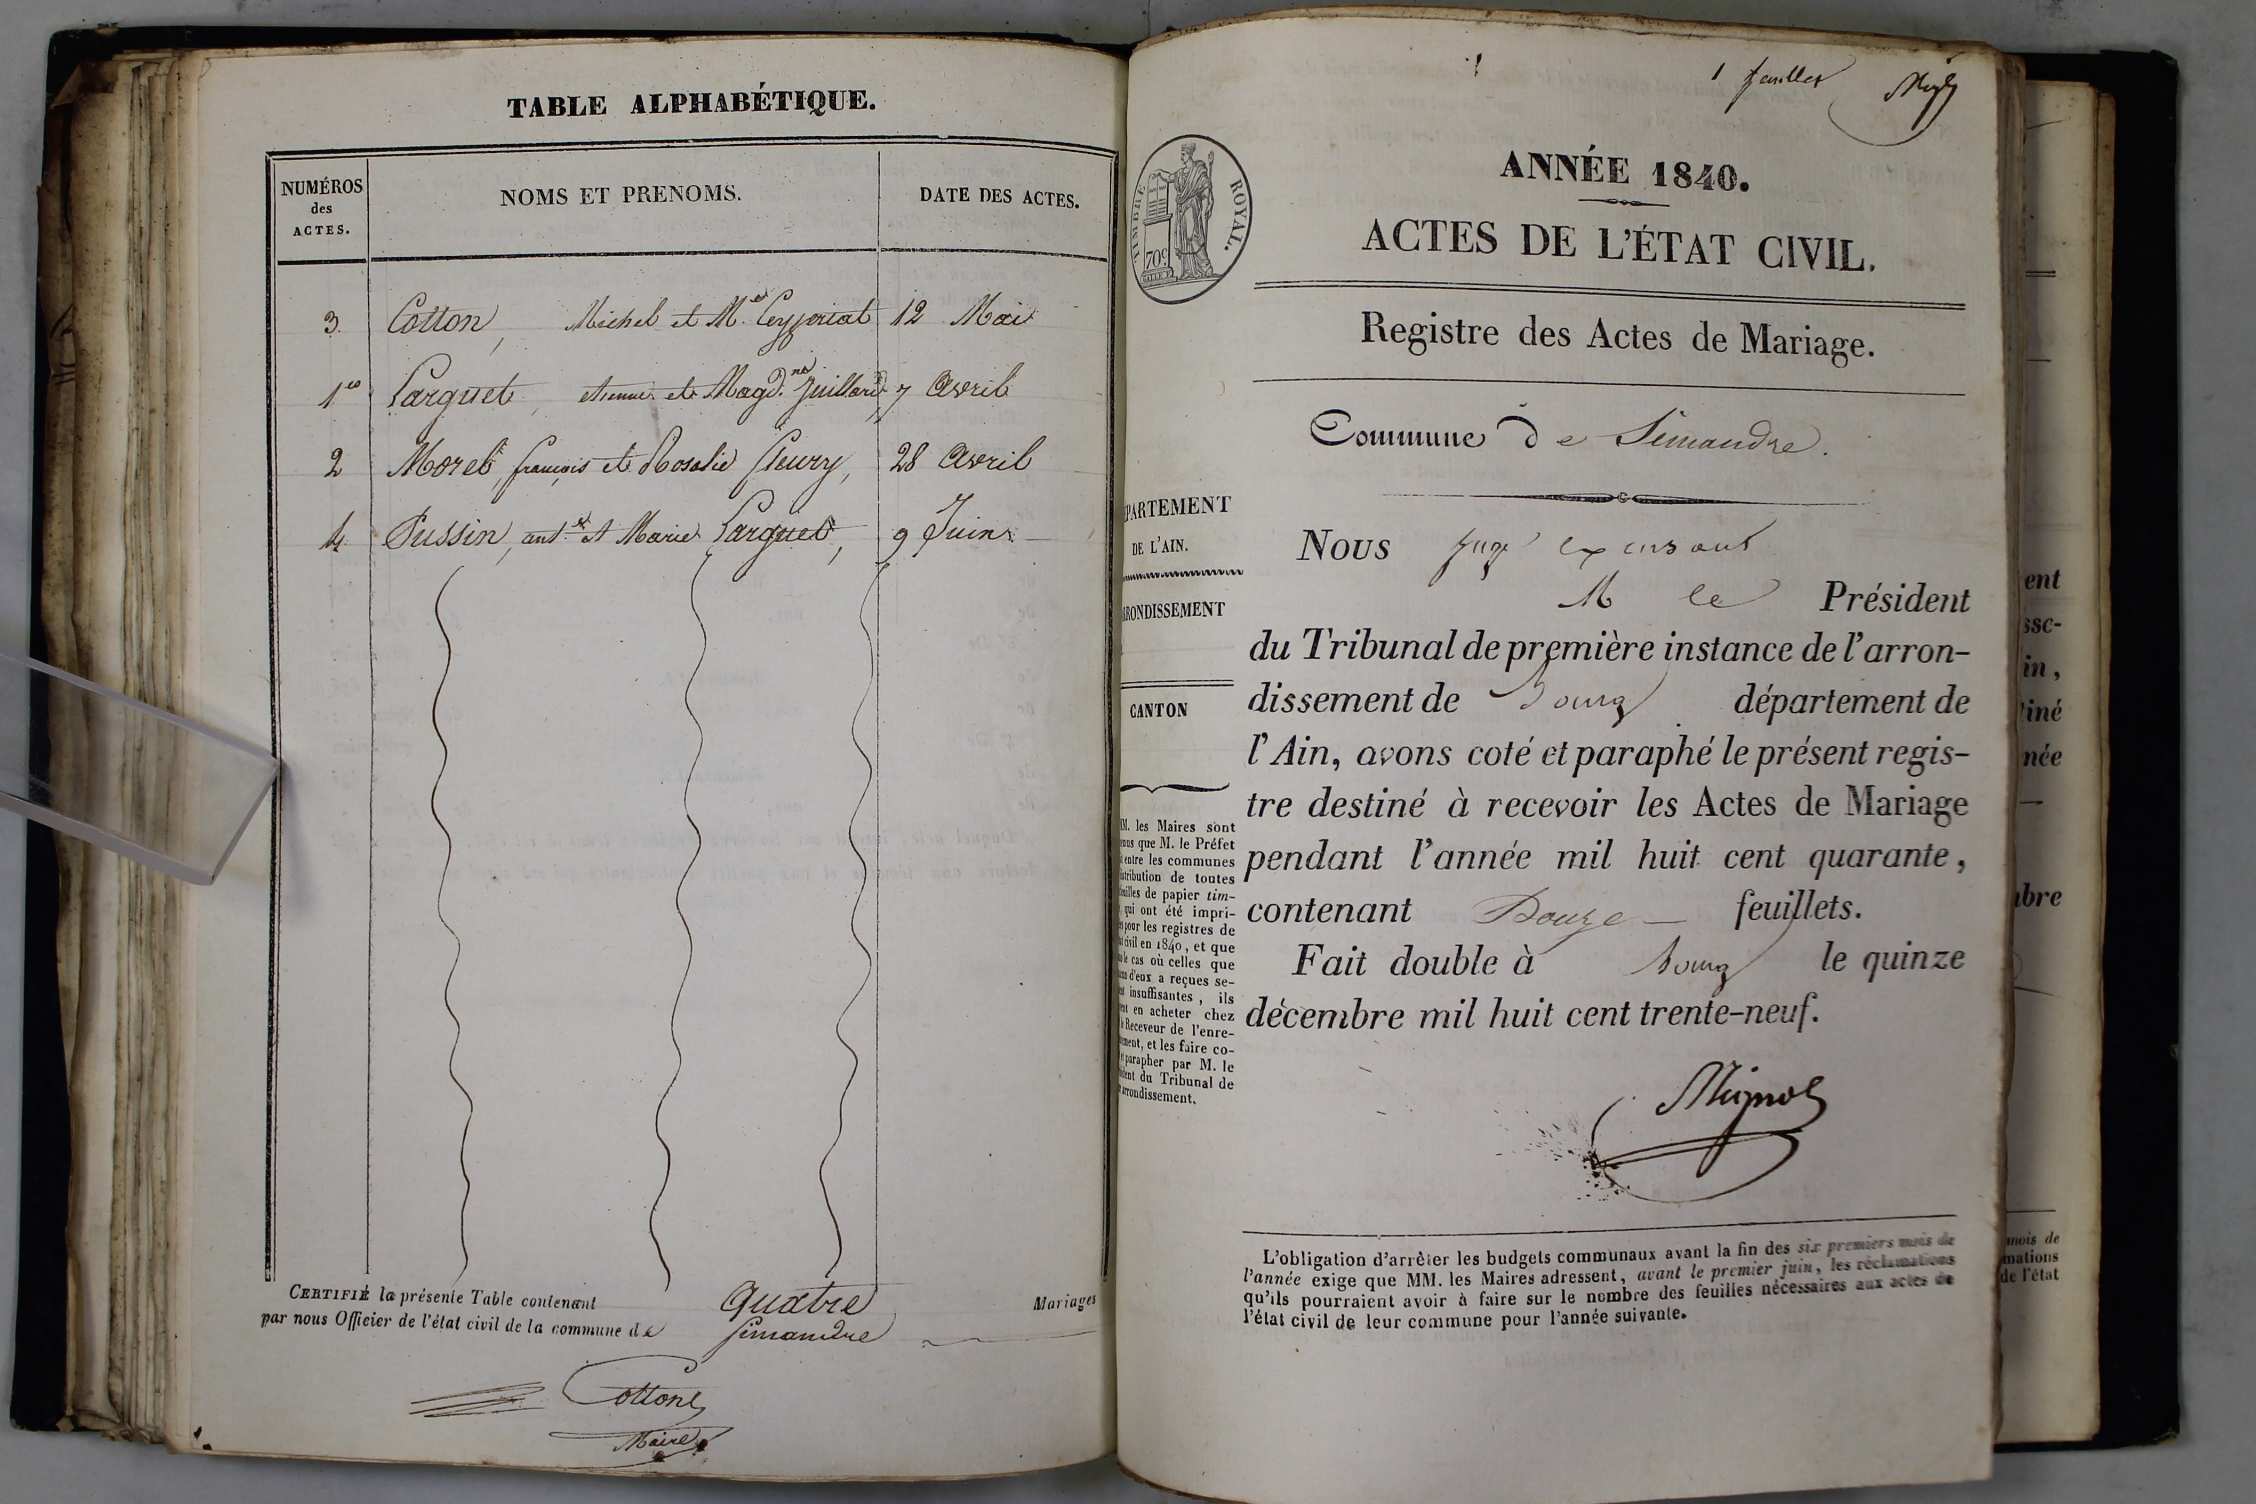 TABLE ALPHABÉTIQUE.
NUMÉROS
des
ACTES.
NOMS ET PRENOMS.
DATE DES ACTES.
3. Cotton, Michel et Mie Ceyzeriat 12 Mai
1er Larguet, etienne et Magd.ne Juillard, 7 Avril
2 Morel, françois et Rosalie fleury, 28 Avril
4 Pussin, ant.e et Marie Larguet, 9 Juin
CERTIFIÉ la présente Table contenant Quatre Mariages
par nous Officier de l'état civil de la commune de Simandre
Cotton
Maire
1 feuillet
TIMBRE ROYAL.
70c.
ANNÉE 1840.
ACTES DE L'ÉTAT CIVIL.
Registre des Actes de Mariage.
Commune de Simandre.
PARTEMENT
DE L'AIN.
RONDISSEMENT
CANTON
MM. les Maires sont
que M. le Préfet
entre les communes
distribution de toutes
feuilles de papier tim-
qui ont été impri-
pour les registres de
civil en 1840, et que
le cas où celles que
d'eux a reçues se-
insuffisantes, ils
en acheter chez
Receveur de l'enre-
et les faire co-
parapher par M. le
du Tribunal de
arrondissement.
Nous Juge
M le Président
du Tribunal de première instance de l'arron-
dissement de Bourg département de
l'Ain, avons coté et paraphé le présent regis-
tre destiné à recevoir les Actes de Mariage
pendant l'année mil huit cent quarante,
contenant Douze feuillets.
Fait double à Bourg le quinze
décembre mil huit cent trente-neuf.
L'obligation d'arrêter les budgets communaux avant la fin des six premiers mois de
l'année exige que MM. les Maires adressent, avant le premier juin, les réclamations
qu'ils pourraient avoir à faire sur le nombre des feuilles nécessaires aux actes de
l'état civil de leur commune pour l'année suivante.
ent
sse-
in,
tiné
née
mbre
mois de
mations
de l'état